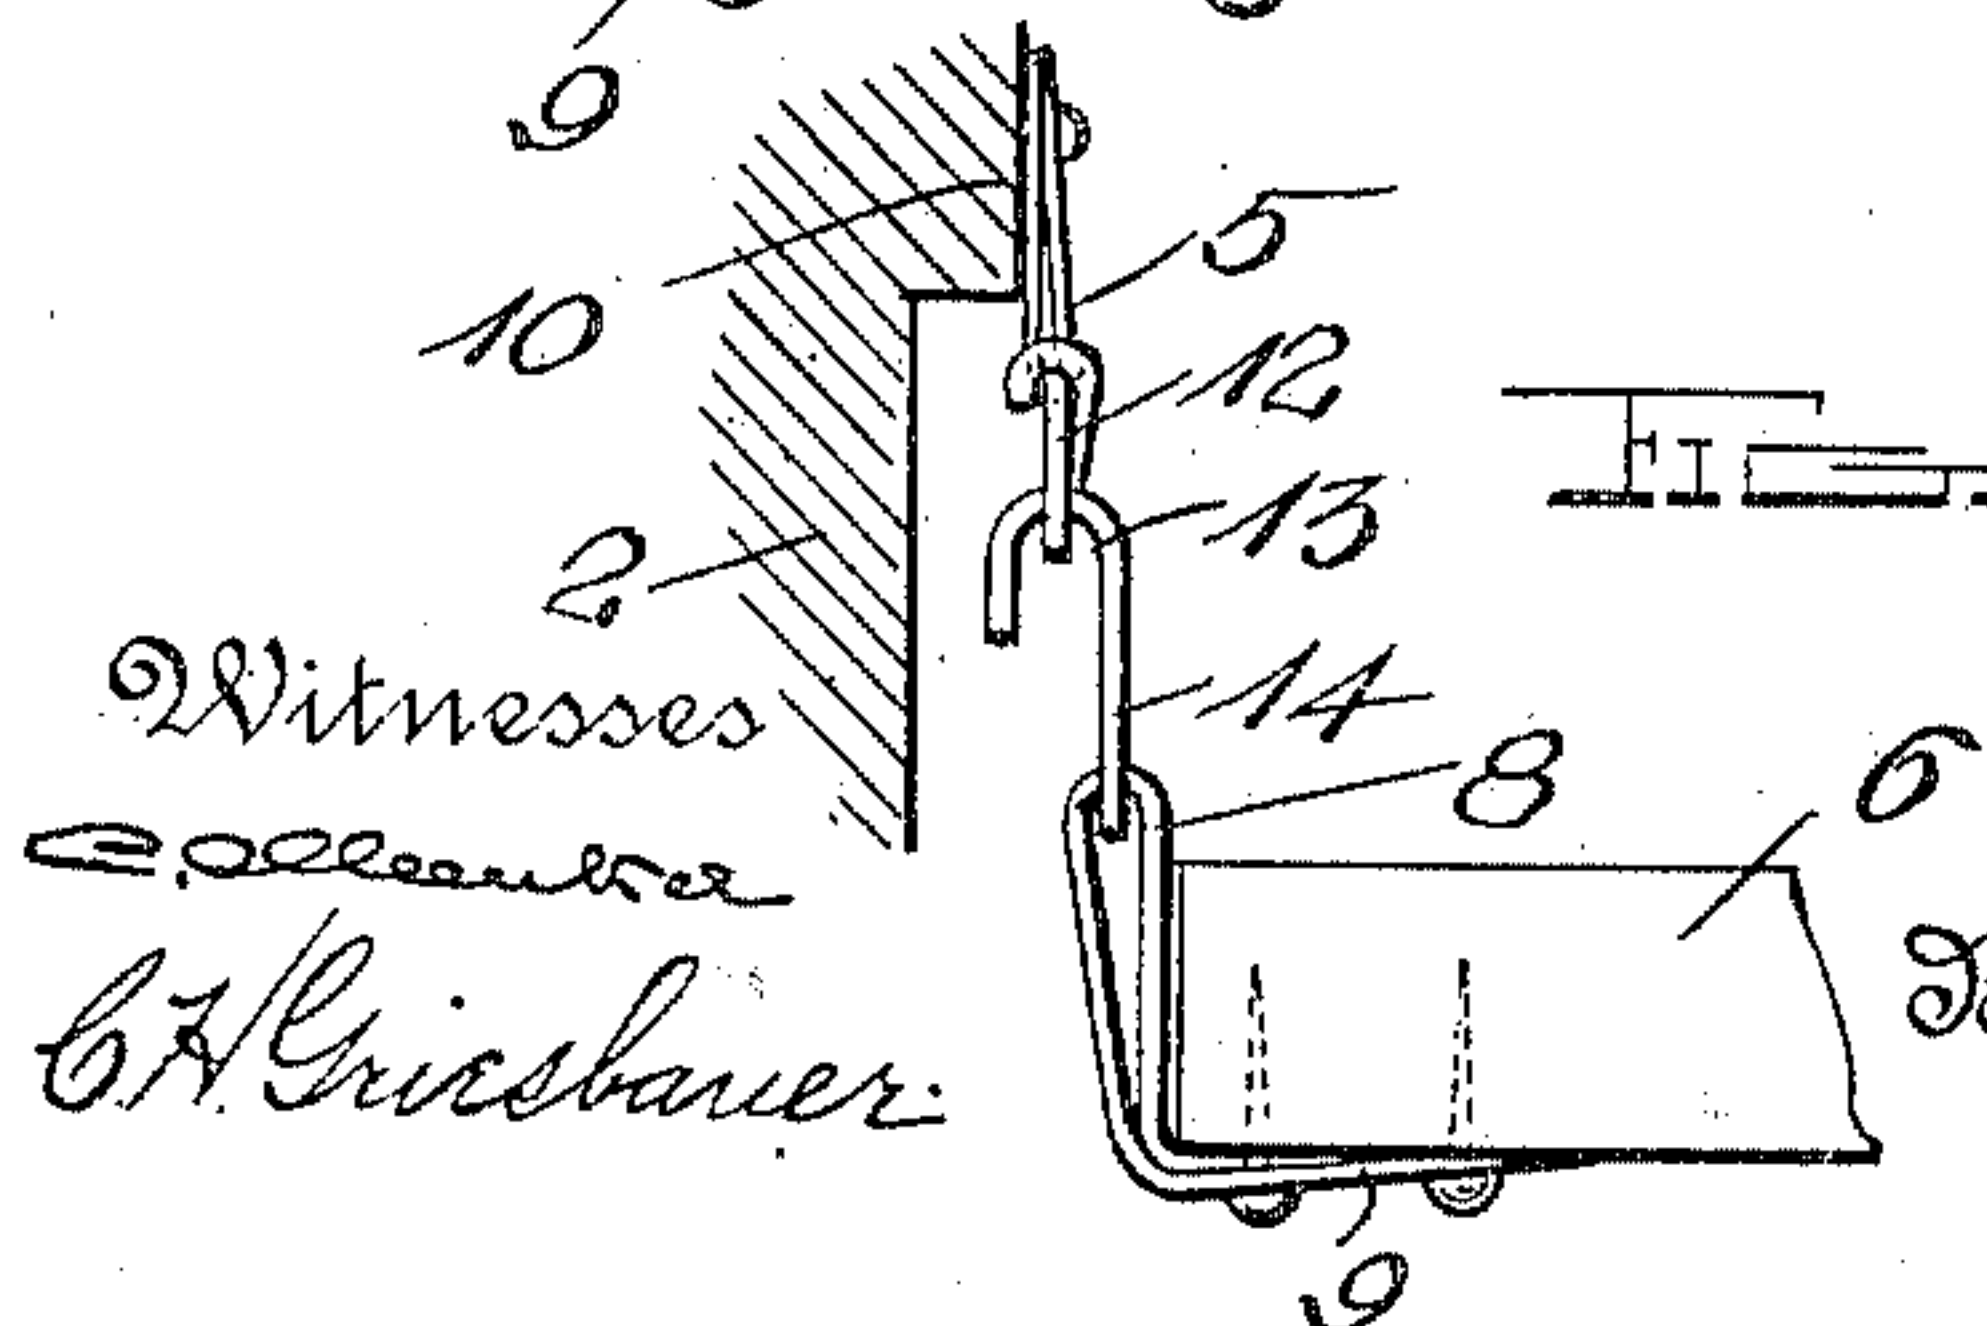 9
10
5
12
13
2
14
8
6
Witnesses
C.H. Griesbauer.
9